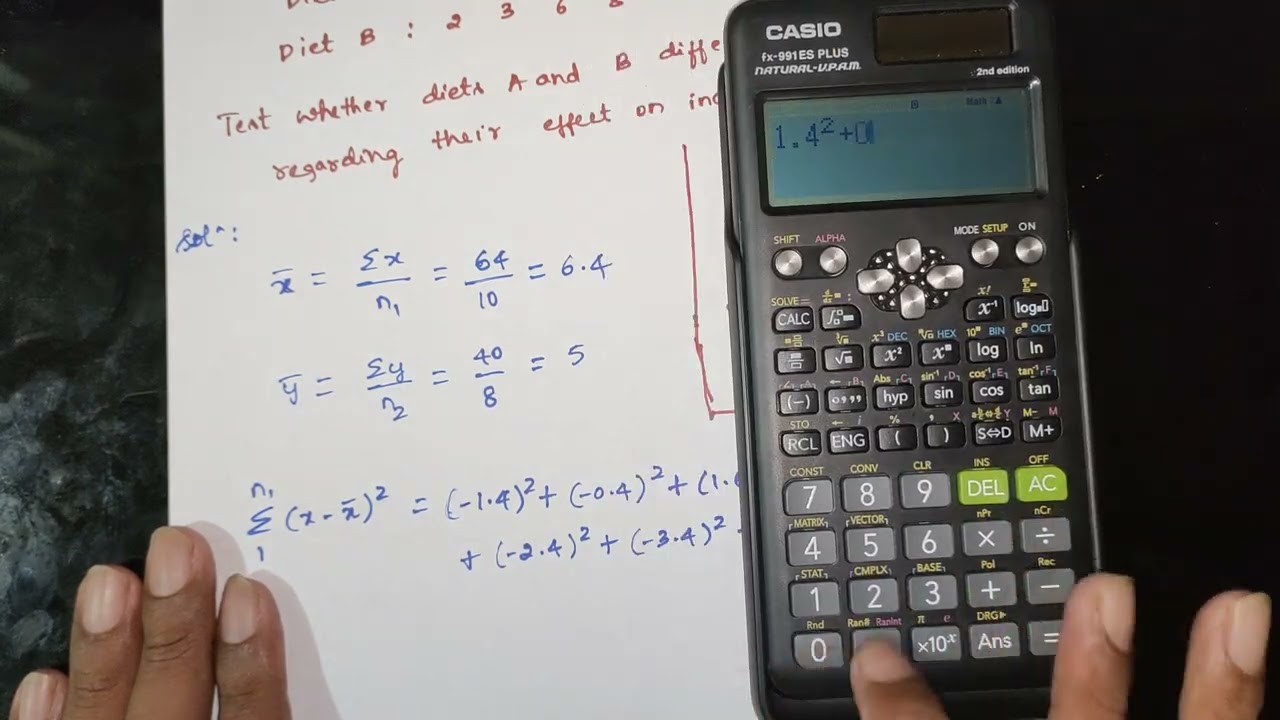 Diet B : 2 3 6 8
Test whether diets A and B diffe
regarding their effect on inc
Solⁿ:
x̄ = Σx/n₁ = 64/10 = 6.4
ȳ = Σy/n₂ = 40/8 = 5
n₁
Σ (x - x̄)² = (-1.4)² + (-0.4)² + (1.6
1
+ (-2.4)² + (-3.4)²
CASIO
fx-991ES PLUS
NATURAL-V.P.A.M.
2nd edition
Math ▲
1.4²+0
SHIFT ALPHA MODE SETUP ON
SOLVE = d/dx : x! Σ
CALC ∫ x⁻¹ log
x³ DEC HEX 10 BIN e OCT
√ x² x log ln
Abs C sin⁻¹ D cos⁻¹ E tan⁻¹ F
(-) hyp sin cos tan
STO ← i % , X Y M- M
RCL ENG ( ) S⇔D M+
CONST CONV CLR INS OFF
7 8 9 DEL AC
MATRIX VECTOR nPr nCr
4 5 6 × ÷
STAT CMPLX BASE Pol Rec
1 2 3 + −
Rnd Ran# RanInt π e DRG▶
0 ×10ˣ Ans =